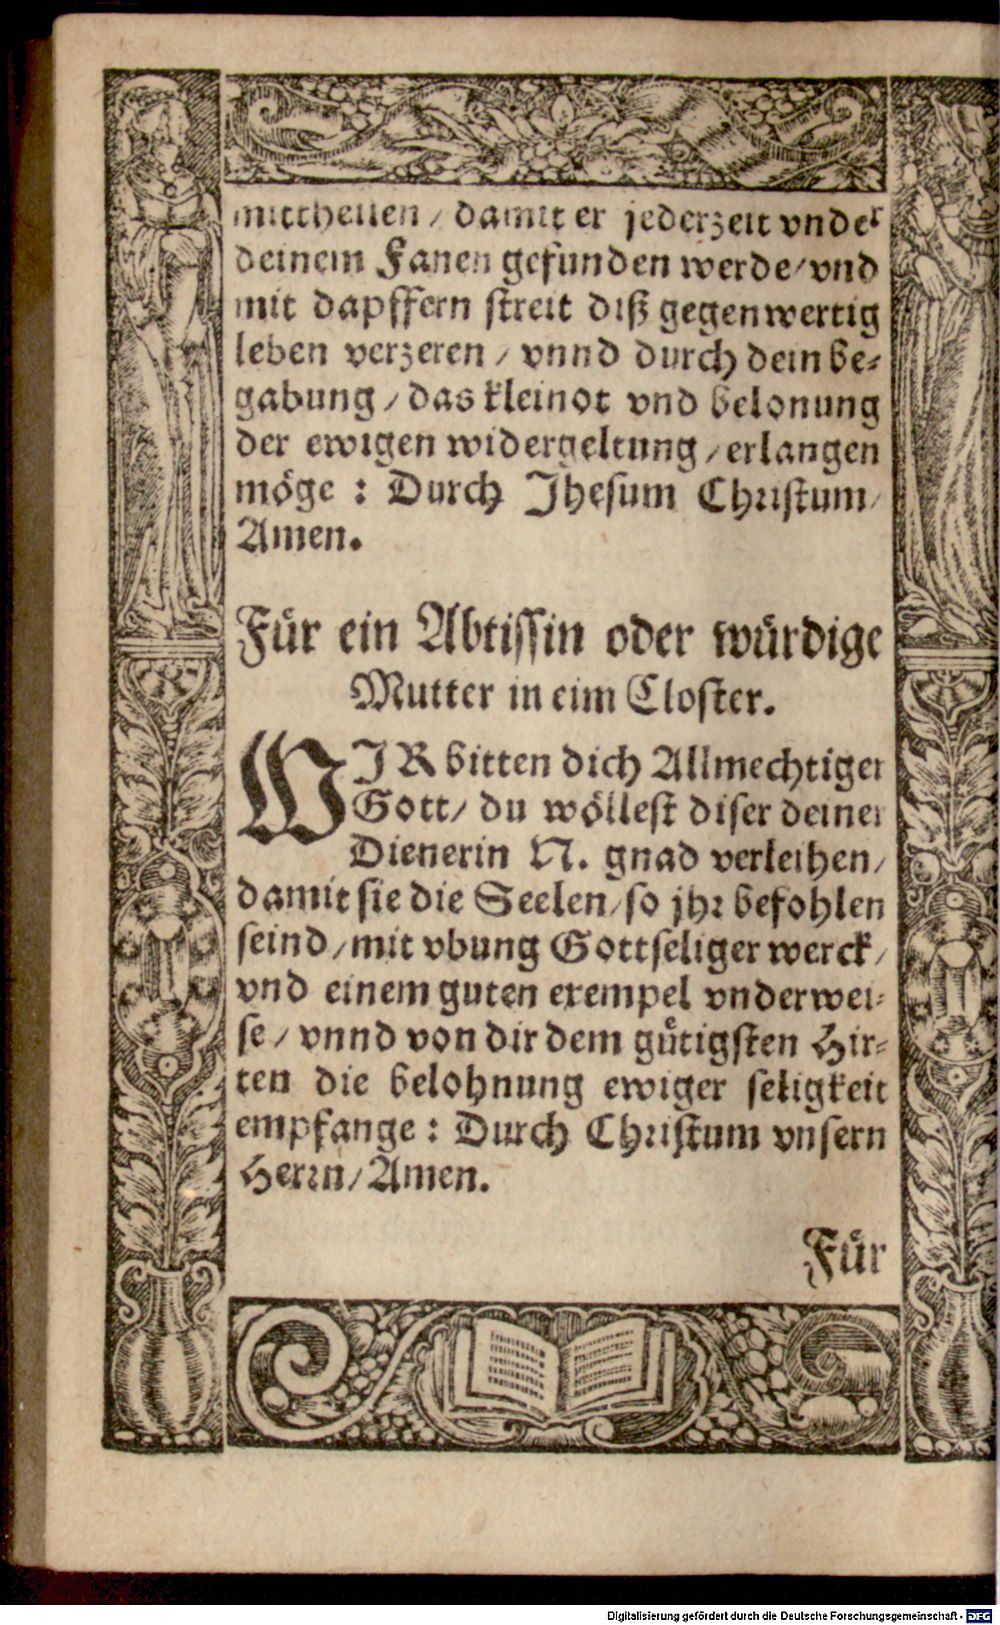 mittheilen / damit er jederzeit vnder
deinem Fanen gefunden werde / vnd
mit dapffern streit diß gegenwertig
leben verzeren / vnnd durch dein be-
gabung / das kleinot vnd belonung
der ewigen widergeltung / erlangen
möge : Durch Jhesum Christum /
Amen.
Für ein Abtissin oder würdige
Mutter in eim Closter.
WJR bitten dich Allmechtiger
Gott / du wöllest diser deiner
Dienerin N. gnad verleihen /
damit sie die Seelen / so jhr befohlen
seind / mit vbung Gottseliger werck /
vnd einem guten exempel vnderwei-
se / vnnd von dir dem gütigsten Hir-
ten die belohnung ewiger seligkeit
empfange : Durch Christum vnsern
Herrn / Amen.
Für
Digitalisierung gefördert durch die Deutsche Forschungsgemeinschaft - DFG